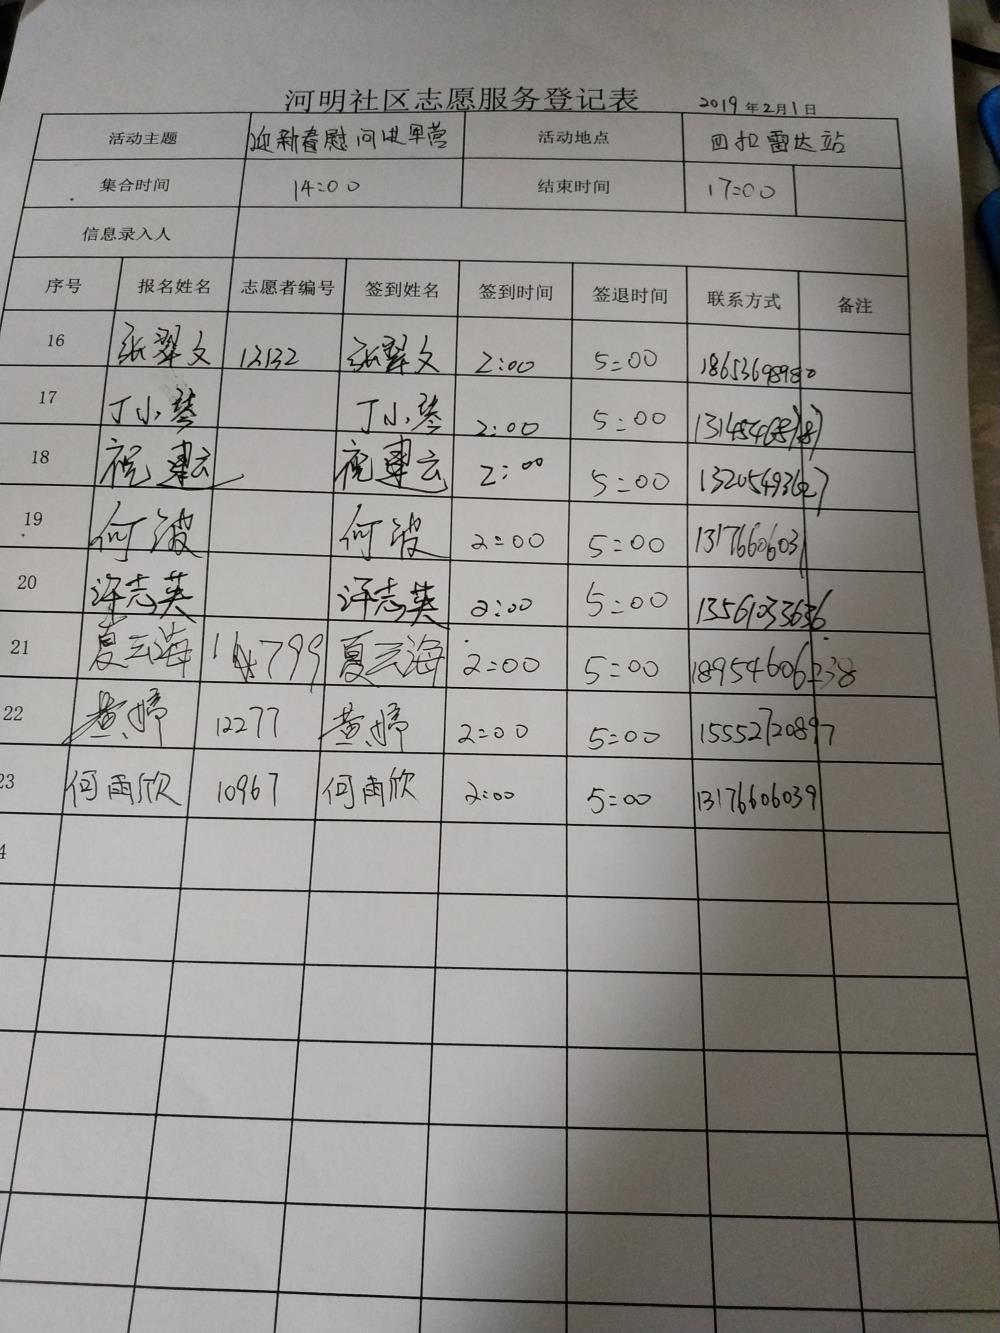 河明社区志愿服务登记表 2019年2月1日
活动主题 迎新春慰问进军营 活动地点 四扣雷达站
集合时间 14:00 结束时间 17:00
信息录入人
序号 报名姓名 志愿者编号 签到姓名 签到时间 签退时间 联系方式 备注
16 张翠文 12132 张翠文 2:00 5:00 18653698980
17 丁小琴 丁小琴 2:00 5:00
18 祝建云 祝建云 2:00 5:00 13205493627
19 何波 何波 2:00 5:00 1317660603
20 许志英 许志英 2:00 5:00 13561033636
21 夏云海 夏云海 2:00 5:00 18954606238
22 黄婷 12277 黄婷 2:00 5:00 15552720897
23 何雨欣 10967 何雨欣 2:00 5:00 13176606039
4